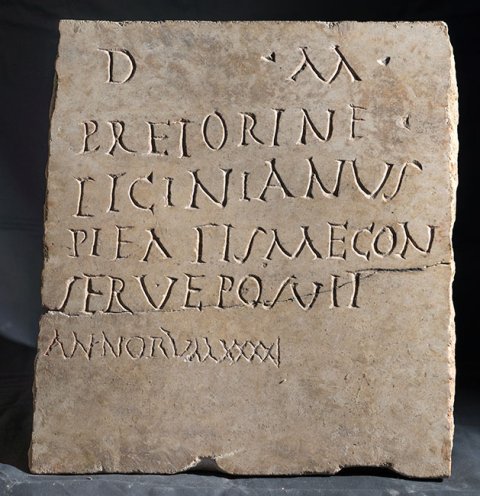 D · M ·
PRETORINE ·
LICINIANVS
PIENTISMECON
SERVEPOSVIT
AN·NORVMXXXXI